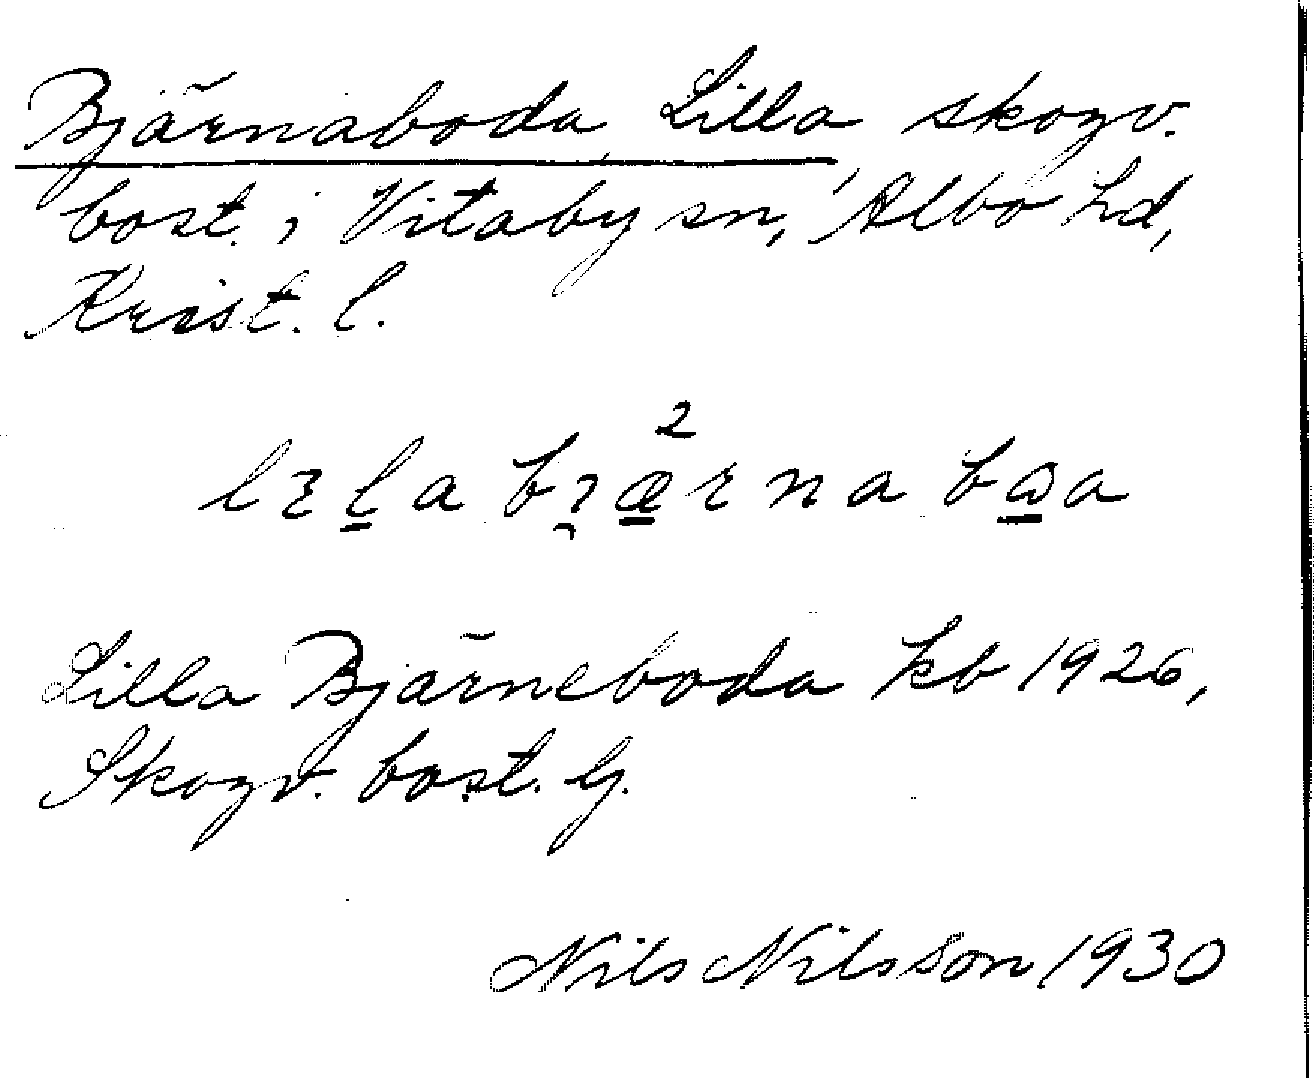 Bjärnaboda, Lilla, skogv.
bost. i Vitaby sn, Albo hd,
Krist. l.
2
Lilla Bjärneboda kb 1926,
Skogv. bost. G.
Nils Nilsson 1930